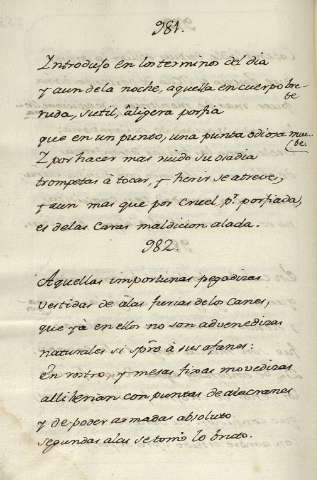 981.
Introdujo en los terminos del dia
y aun de la noche, aquella en cuerpo breve
ruda, sutil, aligera porfia
que en un punto, una punta
Y por hacer mas ruido su osadia
trompetas à tocar, y herir se atreve,
y aun mas que por cruel, pr. porfiada,
es de las Caras maldicion alada.
982.
Aquellas importunas pegadizas
vestidas de alas furias de los Canes,
que yà en ellos no son advenedizas
naturales si spre. à sus afanes:
en rostro, y mesas fixas movedizas
alli herian con puntas de alacranes
y de poder armadas absoluto
segundas alas se tomó lo bruto.